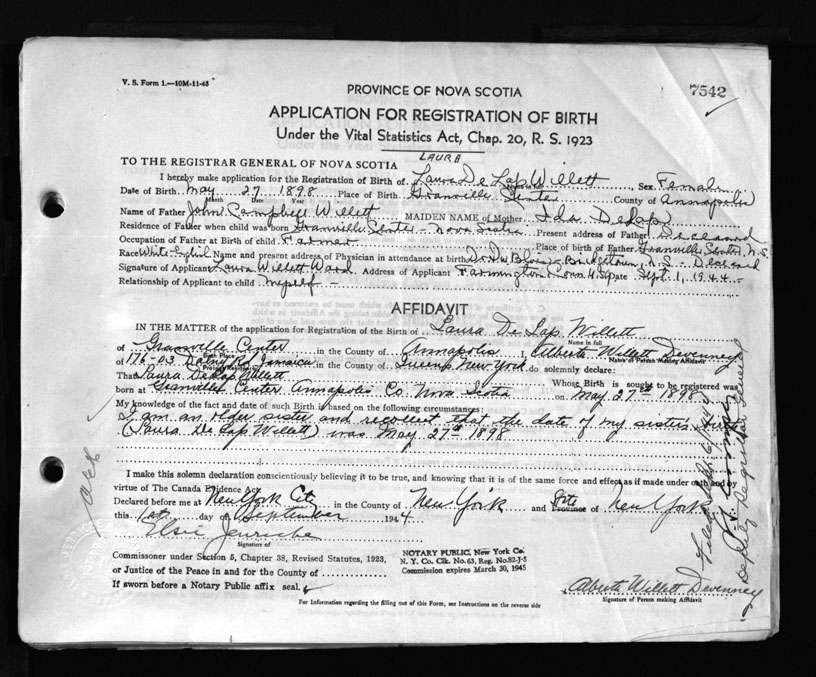 V. S. Form 1.—10M-11-43
7542
PROVINCE OF NOVA SCOTIA
APPLICATION FOR REGISTRATION OF BIRTH
Under the Vital Statistics Act, Chap. 20, R. S. 1923
TO THE REGISTRAR GENERAL OF NOVA SCOTIA
LAURA
I hereby make application for the Registration of Birth of Laura De Lap Willett Sex Female
Date of Birth May 27 1898 Place of Birth Granville Center County of Annapolis
Month Date Year
Name of Father John Campbell Willett MAIDEN NAME of Mother Ida DeLap
Residence of Father when child was born Granville Center - Nova Scotia Present address of Father Deceased
Occupation of Father at Birth of child Farmer Place of birth of Father Granville Center, N.S.
Race White-English Name and present address of Physician in attendance at birth Bridgetown, N.S. - Deceased
Signature of Applicant Laura Willett Ward Address of Applicant Farmington Conn Date Sept. 1, 1944 -
Relationship of Applicant to child Myself -
AFFIDAVIT
IN THE MATTER of the application for Registration of the Birth of Laura De Lap Willett
Name in full
of Granville Center in the County of Annapolis I, Alberta Willett Devenney
Birth Place Name of Person Making Affidavit
of 176-03 Jamaica in the County of Queens New York do solemnly declare:
That Laura DeLap Willett Whose Birth is sought to be registered was
born at Granville Center Annapolis Co. Nova Scotia on May 27th 1898
My knowledge of the fact and date of such Birth is based on the following circumstances:
I am an older sister and recollect that the date of my sisters birth
(Laura De Lap Willett) was May 27th 1898
I make this solemn declaration conscientiously believing it to be true, and knowing that it is of the same force and effect as if made under oath and by
virtue of The Canada Evidence Act.
Declared before me at New York City in the County of New York and State Province of New York
this 1st day of September 1944
Elsie
Signature of
Commissioner under Section 5, Chapter 38, Revised Statutes, 1923,
or Justice of the Peace in and for the County of
If sworn before a Notary Public affix seal.
NOTARY PUBLIC, New York Co.
N. Y. Co. Clk. No. 63, Reg. No. 82-J-5
Commission expires March 30, 1945
Alberta Willett Devenney
Signature of Person making Affidavit
For Information regarding the filling out of this Form, see Instructions on the reverse side
Deputy Registrar General